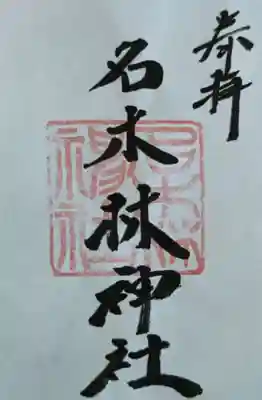 奉拝
名木林神社